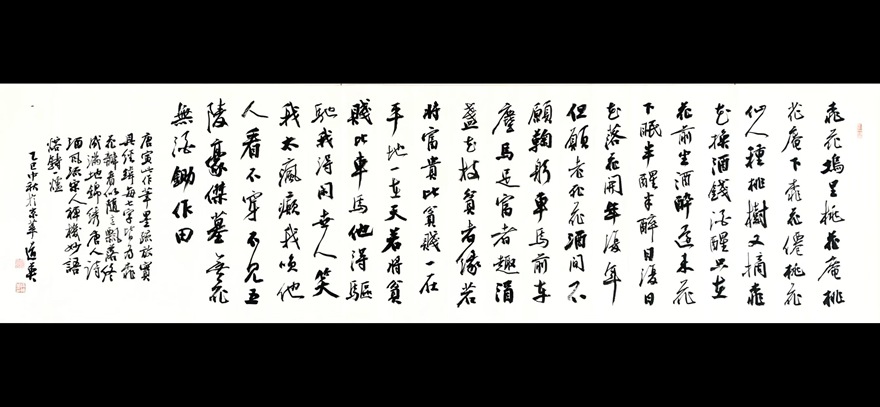 桃花塢里桃花庵桃
花庵下桃花僊桃花
仙人種桃樹又摘桃
花換酒錢酒醒只在
花前坐酒醉還來花
下眠半醒半醉日復日
花落花開年復年
但願老死花酒間不
願鞠躬車馬前車
塵馬足富者趣酒
盞花枝貧者緣若
將富貴比貧賤一在
平地一在天若將貧
賤比車馬他得驅
馳我得閒世人笑
我太瘋癲我咲他
人看不穿不見五
陵豪傑墓無花
無酒鋤作田
唐寅此作筆墨疏放實
具經緯每七字皆為
花瓣看似隨意飄落終
成滿地錦繡唐人詩
酒風流宋人禪機妙語
熔鑄
乙巳中秋於京華